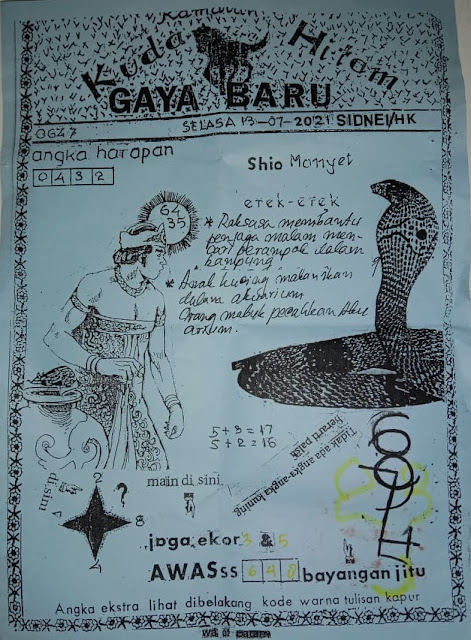 Ramalan
Kuda Hitam
GAYA BARU
SELASA 13-07-2021 SIDNEI/HK
angka harapan
0432
Shio Monyet
erek-erek
64
35
* Raksasa membantu
penjaga malam men-
cari perampok dalam
kampung.
* Anak kucing makan ikan
dalam akuarium
Orang mabuk pecahkan aku
arium.
5+3=17
5+2=16
Tidak ada angka-angka kuning
berarti palsu
main di sini
disini
2
?
8
4
jaga ekor 3 & 5
AWASss 648 bayangan jitu
Angka ekstra lihat dibelakang kode warna tulisan kapur